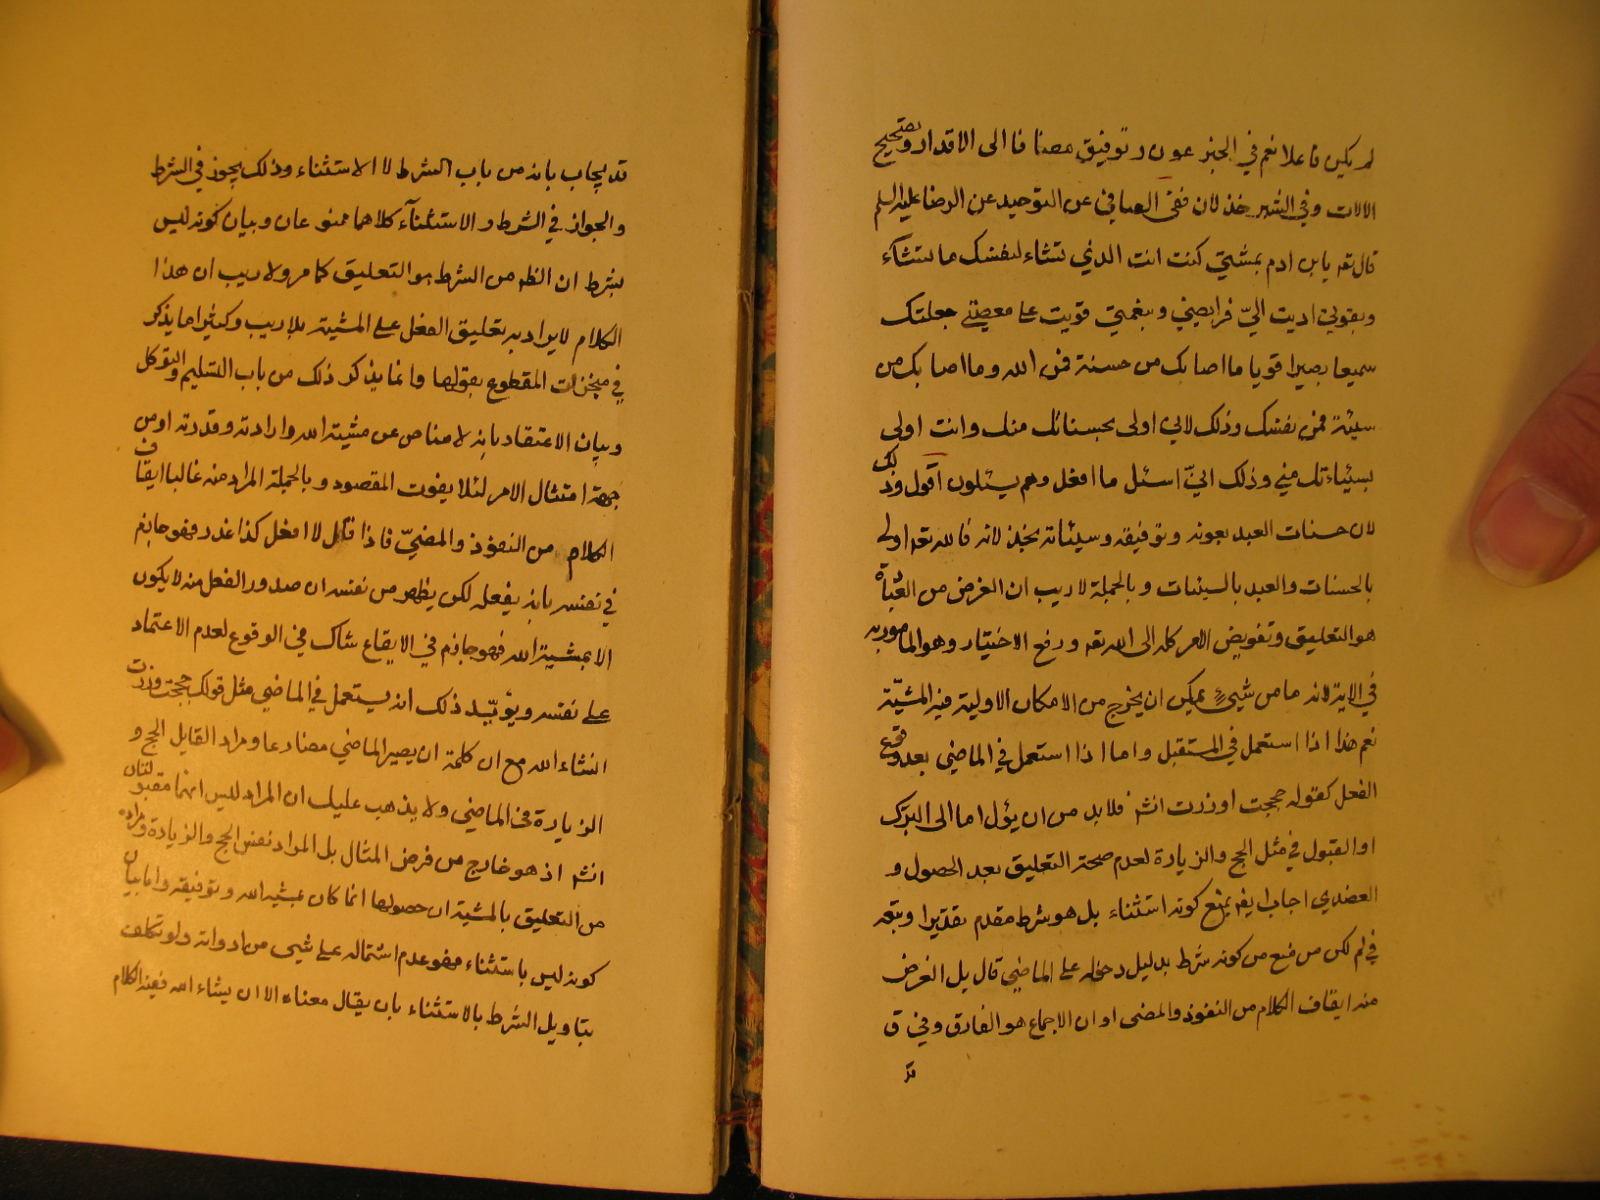 لم يكن فاعلا نعم في الخير عون وتوفيق مضافا الى الاقدار وتصحيح
الالات وفي الشر خذلان ففي الصافي عن التوحيد عن الرضا عليه السلم
قال تعه يابن ادم بمشيتي كنت انت الذي تشاء لنفسك ما تشاء
وبقوتي اديت اليّ فرايضي وبنعمتي قويت على معصيتي جعلتك
سميعا بصيرا قويا ما اصابك من حسنة فمن الله وما اصابك من
سيئة فمن نفسك وذلك لاني اولى بحسناتك منك وانت اولى
بسيئاتك مني وذلك انيّ اسئل ما افعل وهم يسئلون اقول وذلك
لان حسنات العبد بعونه وتوفيقه وسيئاته بخذلانه فالله تعه اولى
بالحسنات والعبد بالسيئات وبالجملة لا ريب ان الغرض من العبارة
هو التعليق وتفويض الامر كله الى الله تعه ورفع الاختيار وهو المامور به
في الاية لانه ما من شيئ يمكن ان يخرج من الامكان الاولية فيه المشيّة
نعم هذا اذا استعمل في المستقبل واما اذا استعمل في الماضي بعد وقوع
الفعل كقوله حججت او زرت انشه فلا بد من ان يؤل اما الى التبرك
او القبول في مثل الحج والزيارة لعدم صحة التعليق بعد الحصول و
العضدي اجاب ايضه بمنع كونه استثناء بل هو شرط مقدم تقديرا وبقه
في لم لكن من منع من كونه شرط بدليل دخله على الماضي قال بل الغرض
منه ايقاف الكلام من النفوذ والمضى او ان الاجماع هو الفارق وفي ق
قد
قد يجاب بانه من باب الشرط لا الاستثناء وذلك يجوز في الشرط
والجواز في الشرط والاستثناء كلاهما ممنوعان وبيان كونه ليس
بشرط ان الظه من الشرط هو التعليق كما مر ولا ريب ان هذا
الكلام لا يراد به تعليق الفعل على المشية بلا ريب وكثيرا ما يذكر
في منجزات المقطوع بقولها وانما يذكر ذلك من باب التسليم والتوكل
وبيان الاعتقاد بانه لا مناص عن مشية الله وارادته وقدرته او من
جهة امتثال الامر لئلا يفوت المقصود وبالجملة المراد منه غالبا ايقاف
الكلام من النفوذ والمضيّ فاذا قال لا افعل كذا غدا فهو جازم
في نفسه بانه يفعله لكن يظهر من نفسه ان صدور الفعل منه لا يكون
الا بمشية الله فهو جازم في الايقاع شاك في الوقوع لعدم الاعتماد
على نفسه ويؤيّد ذلك انه يستعمل في الماضي مثل قولك حججت وزرت
انشاء الله مع ان كلمة ان يصير الماضي مضارعا ومراد القايل الحج و
الزيارة في الماضي ولا يذهب عليك ان المراد ليس انهما مقبولتان
انشه اذ هو خارج من فرض المثال بل المراد نفس الحج والزيارة ومراده
من التعليق بالمشية ان حصولها انما كان بمشية الله وتوفيقه واما بيان
كونه ليس باستثناء فهو عدم اشتماله على شيى من ادواته ولو تكلف
بتاويل الشرط بالاستثناء بان يقال معناه الا ان يشاء الله ففيه الكلام